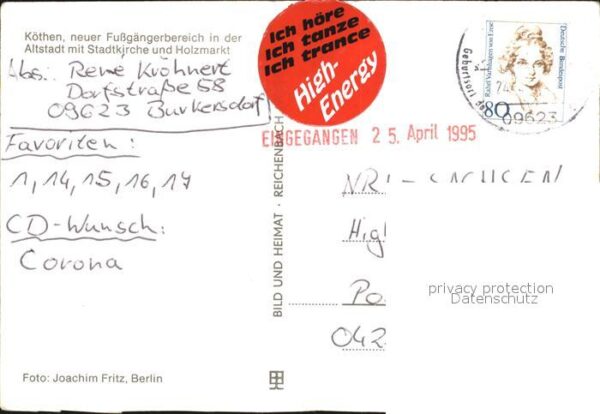 Köthen, neuer Fußgängerbereich in der
Altstadt mit Stadtkirche und Holzmarkt
Abs.: René Kröhnert
Dorfstraße 58
09623 Burkersdorf
Favoriten:
1, 14, 15, 16, 17
CD-Wunsch:
Corona
Foto: Joachim Fritz, Berlin
BILD UND HEIMAT · REICHENBACH
Ich höre
Ich tanze
Ich trance
High-
Energy
EINGEGANGEN 25. April 1995
Deutsche Bundespost
Rahel Varnhagen von Ense
80
Geburtsort der
09623
High
042
privacy protection
Datenschutz